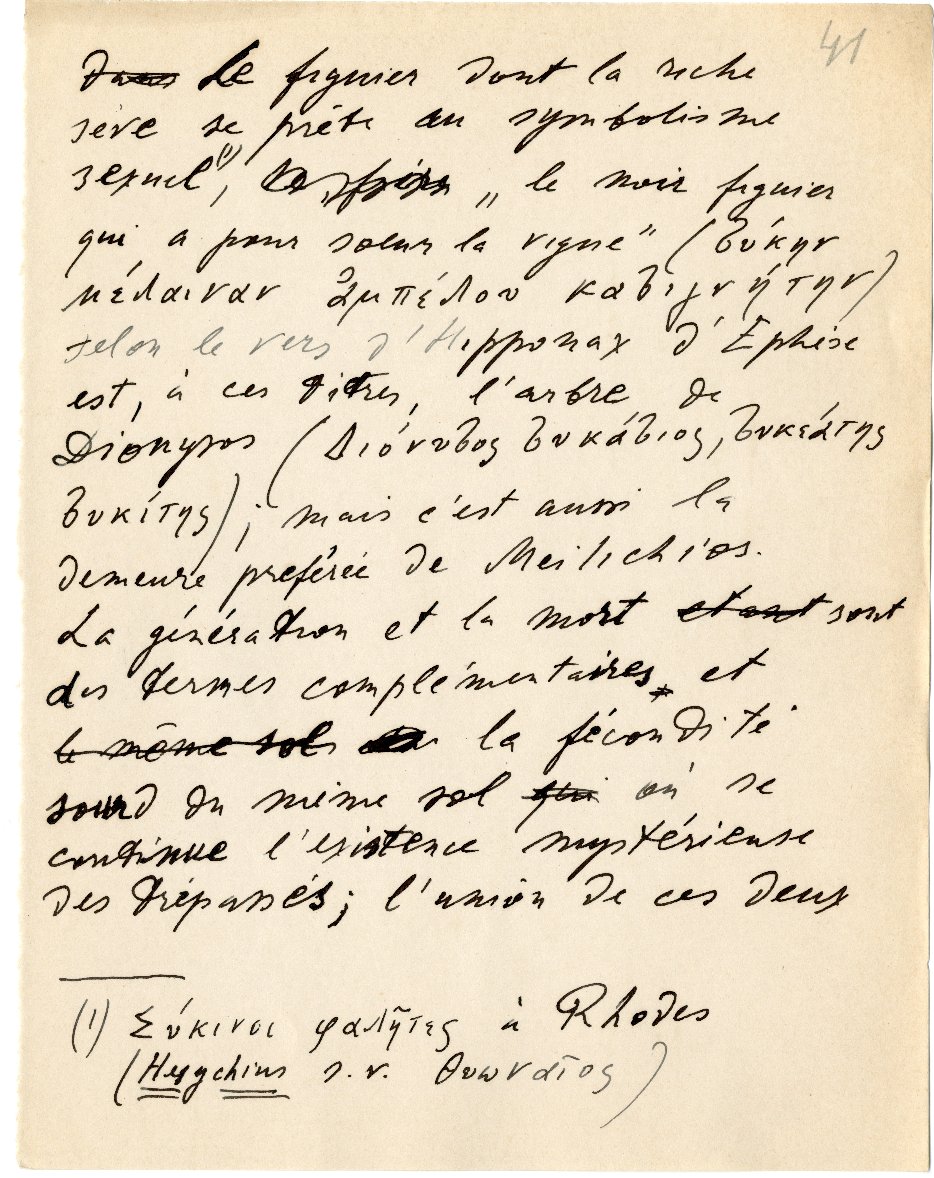 41
Le figuier dont la riche
sève se prête au symbolisme
sexuel (1), „le noir figuier
qui a pour sœur la vigne" (Συκῆν
μέλαιναν ἀμπέλου κασιγνήτην)
selon le vers d'Hipponax d'Ephèse
est, à ces titres, l'arbre de
Dionysos (Διόνυσος Συκάσιος, Συκεάτης
Συκίτης); mais c'est aussi la
demeure préférée de Meilichios.
La génération et la mort sont
des termes complémentaires, et
la fécondité
sourd du même sol où se
continue l'existence mystérieuse
des trépassés; l'union de ces deux
(1) Σύκινοι φαλῆτες à Rhodes
(Hesychius s.v. Θυωναῖος)